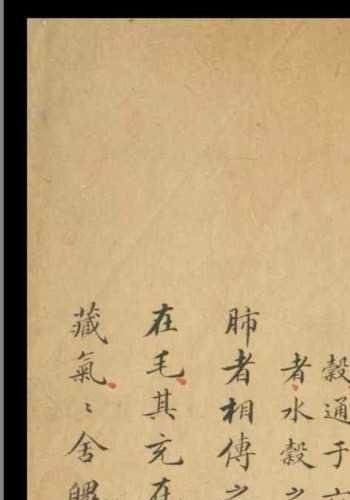 穀通于
者水穀之
肺者相傅之
在毛其充在
藏氣〻舍